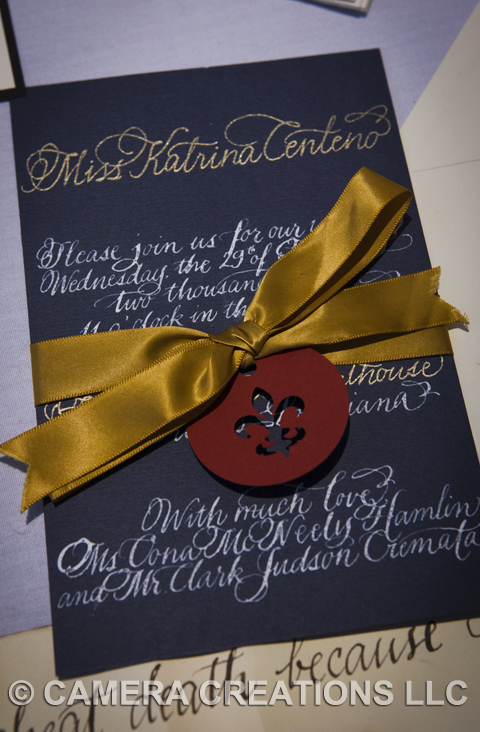 Miss Katrina Centeno
Please join us for our
Wednesday the 29th of
two thousand
o'clock in th
lthouse
iana
With much love,
Ms Oona McNeely Hamlin
and Mr. Clark Judson Cremata
death because
© CAMERA CREATIONS LLC